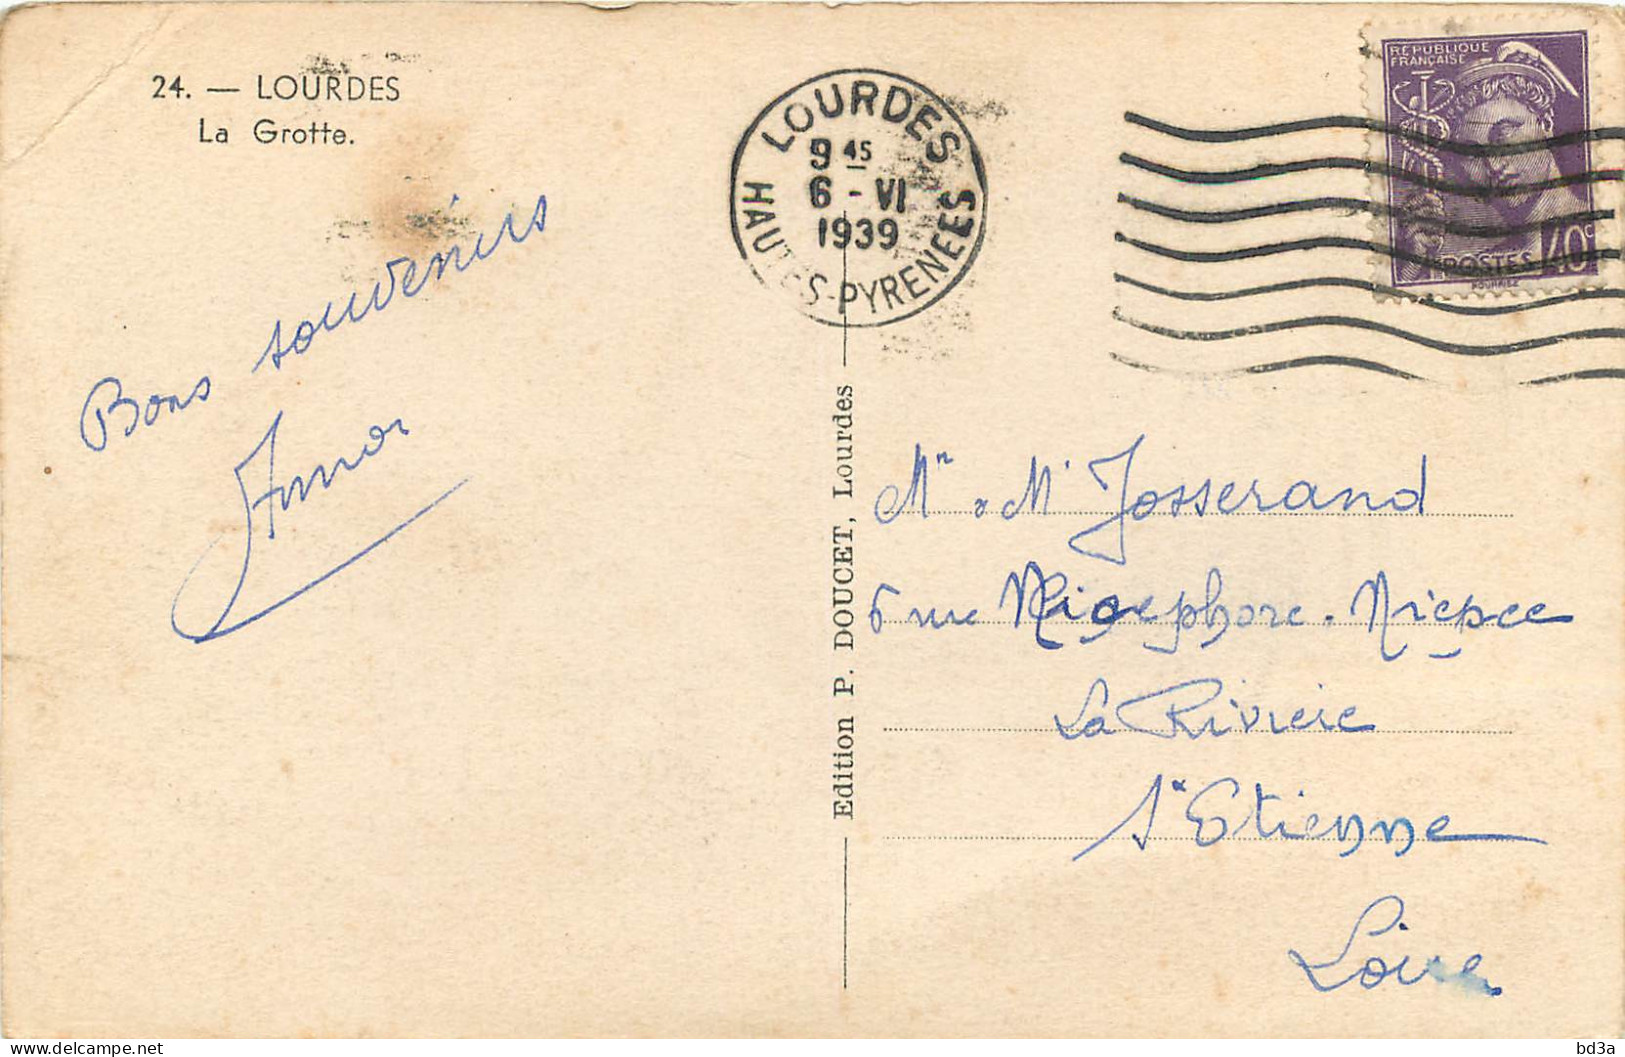 24. — LOURDES
La Grotte.
Bons souvenirs
LOURDES
9 45
6 - VI
1939
HAUTES-PYRENEES
RÉPUBLIQUE
FRANÇAISE
POSTES 40c
Edition P. DOUCET, Lourdes
Mr & Mr Josserand
6 rue Nicephore. Niepce
La Riviere
St Etienne
Loire
bd3a